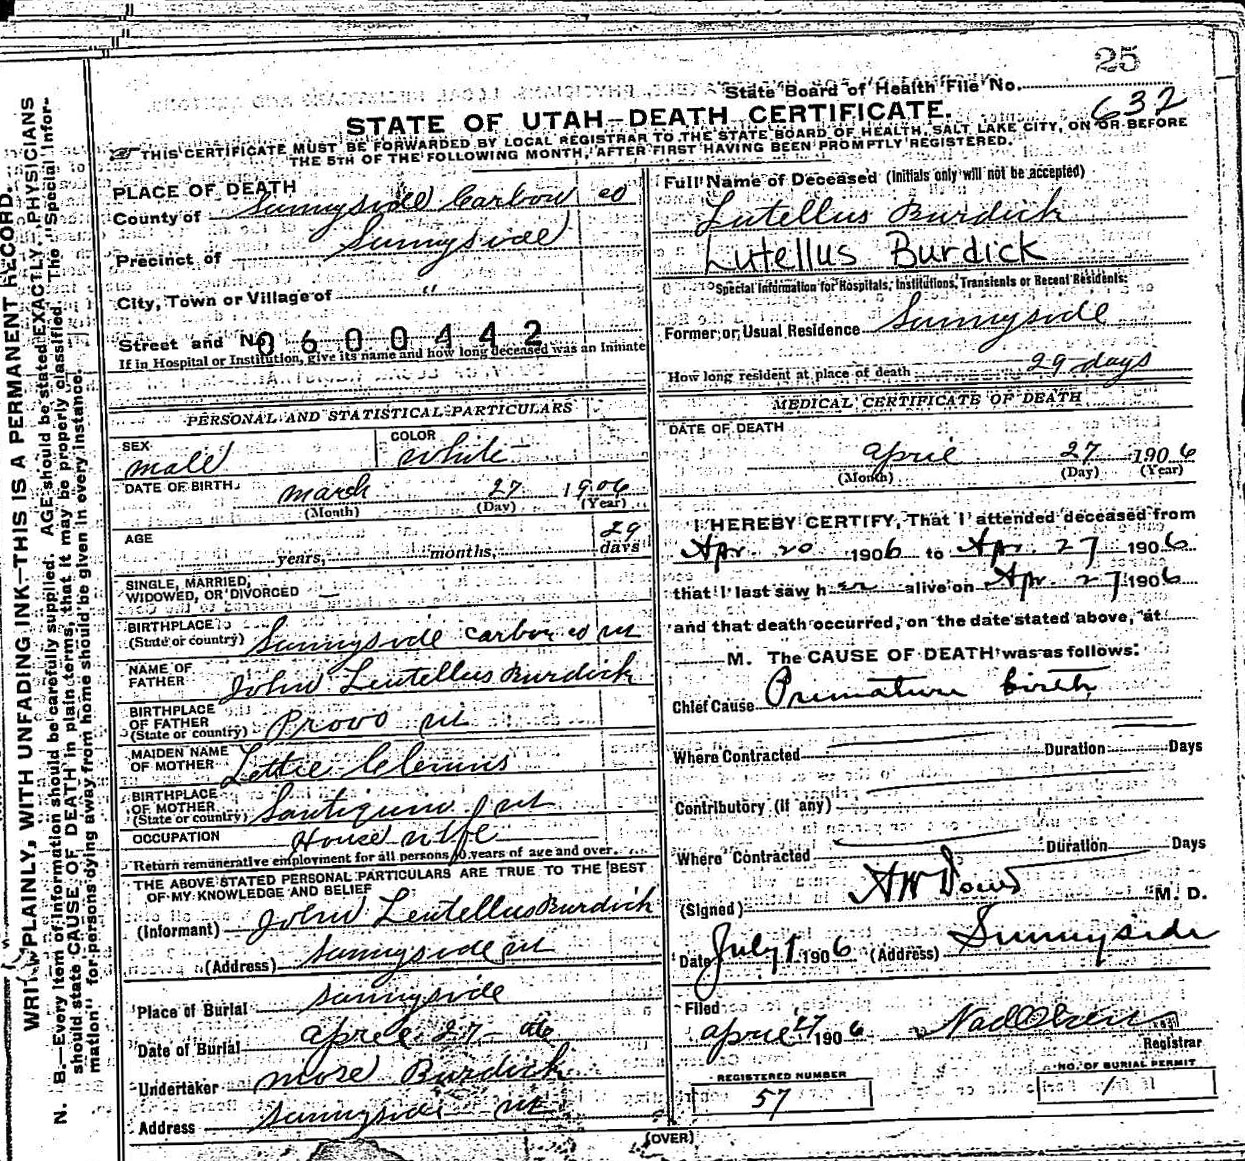 25
State Board of Health File No.
632
STATE OF UTAH—DEATH CERTIFICATE.
THIS CERTIFICATE MUST BE FORWARDED BY LOCAL REGISTRAR TO THE STATE BOARD OF HEALTH, SALT LAKE CITY, ON OR BEFORE
THE 5TH OF THE FOLLOWING MONTH, AFTER FIRST HAVING BEEN PROMPTLY REGISTERED.
WRITE PLAINLY, WITH UNFADING INK—THIS IS A PERMANENT RECORD.
N. B.—Every item of information should be carefully supplied. AGE should be stated EXACTLY. PHYSICIANS
should state CAUSE OF DEATH in plain terms, that it may be properly classified. The "Special Infor-
mation" for persons dying away from home should be given in every instance.
PLACE OF DEATH
County of Sunnyside Carbon co
Precinct of Sunnyside
City, Town or Village of "
Street and No. 0600442
If in Hospital or Institution, give its name and how long deceased was an Inmate
PERSONAL AND STATISTICAL PARTICULARS
SEX male
COLOR white
DATE OF BIRTH march 27 1906
(Month) (Day) (Year)
AGE years, months, 29 days
SINGLE, MARRIED,
WIDOWED, OR DIVORCED —
BIRTHPLACE
(State or country) Sunnyside Carbon co ut
NAME OF
FATHER John Leutellus Burdick
BIRTHPLACE
OF FATHER
(State or country) Provo ut
MAIDEN NAME
OF MOTHER Lettie
BIRTHPLACE
OF MOTHER
(State or country) ut
OCCUPATION House wife
Return remunerative employment for all persons 10 years of age and over.
THE ABOVE STATED PERSONAL PARTICULARS ARE TRUE TO THE BEST
OF MY KNOWLEDGE AND BELIEF
(Informant) John Leutellus Burdick
(Address) Sunnyside ut
Place of Burial Sunnyside
Date of Burial april 27 - 06
Undertaker Burdick
Address Sunnyside ut
Full Name of Deceased (Initials only will not be accepted)
Lutellus Burdick
Lutellus Burdick
Special Information for Hospitals, Institutions, Transients or Recent Residents:
Former or Usual Residence Sunnyside
How long resident at place of death 29 days
MEDICAL CERTIFICATE OF DEATH
DATE OF DEATH
april 27 1906
(Month) (Day) (Year)
I HEREBY CERTIFY, That I attended deceased from
Apr. 20 1906 to Apr. 27 1906
that I last saw h er alive on Apr. 27 1906
and that death occurred, on the date stated above, at
M. The CAUSE OF DEATH was as follows:
Chief Cause Premature birth
Where Contracted Duration Days
Contributory (if any)
Where Contracted Duration Days
(Signed) M. D.
Date July 1 1906 (Address) Sunnyside
Filed
april 27 1906
Registrar
REGISTERED NUMBER
57
NO. OF BURIAL PERMIT
1
(OVER)